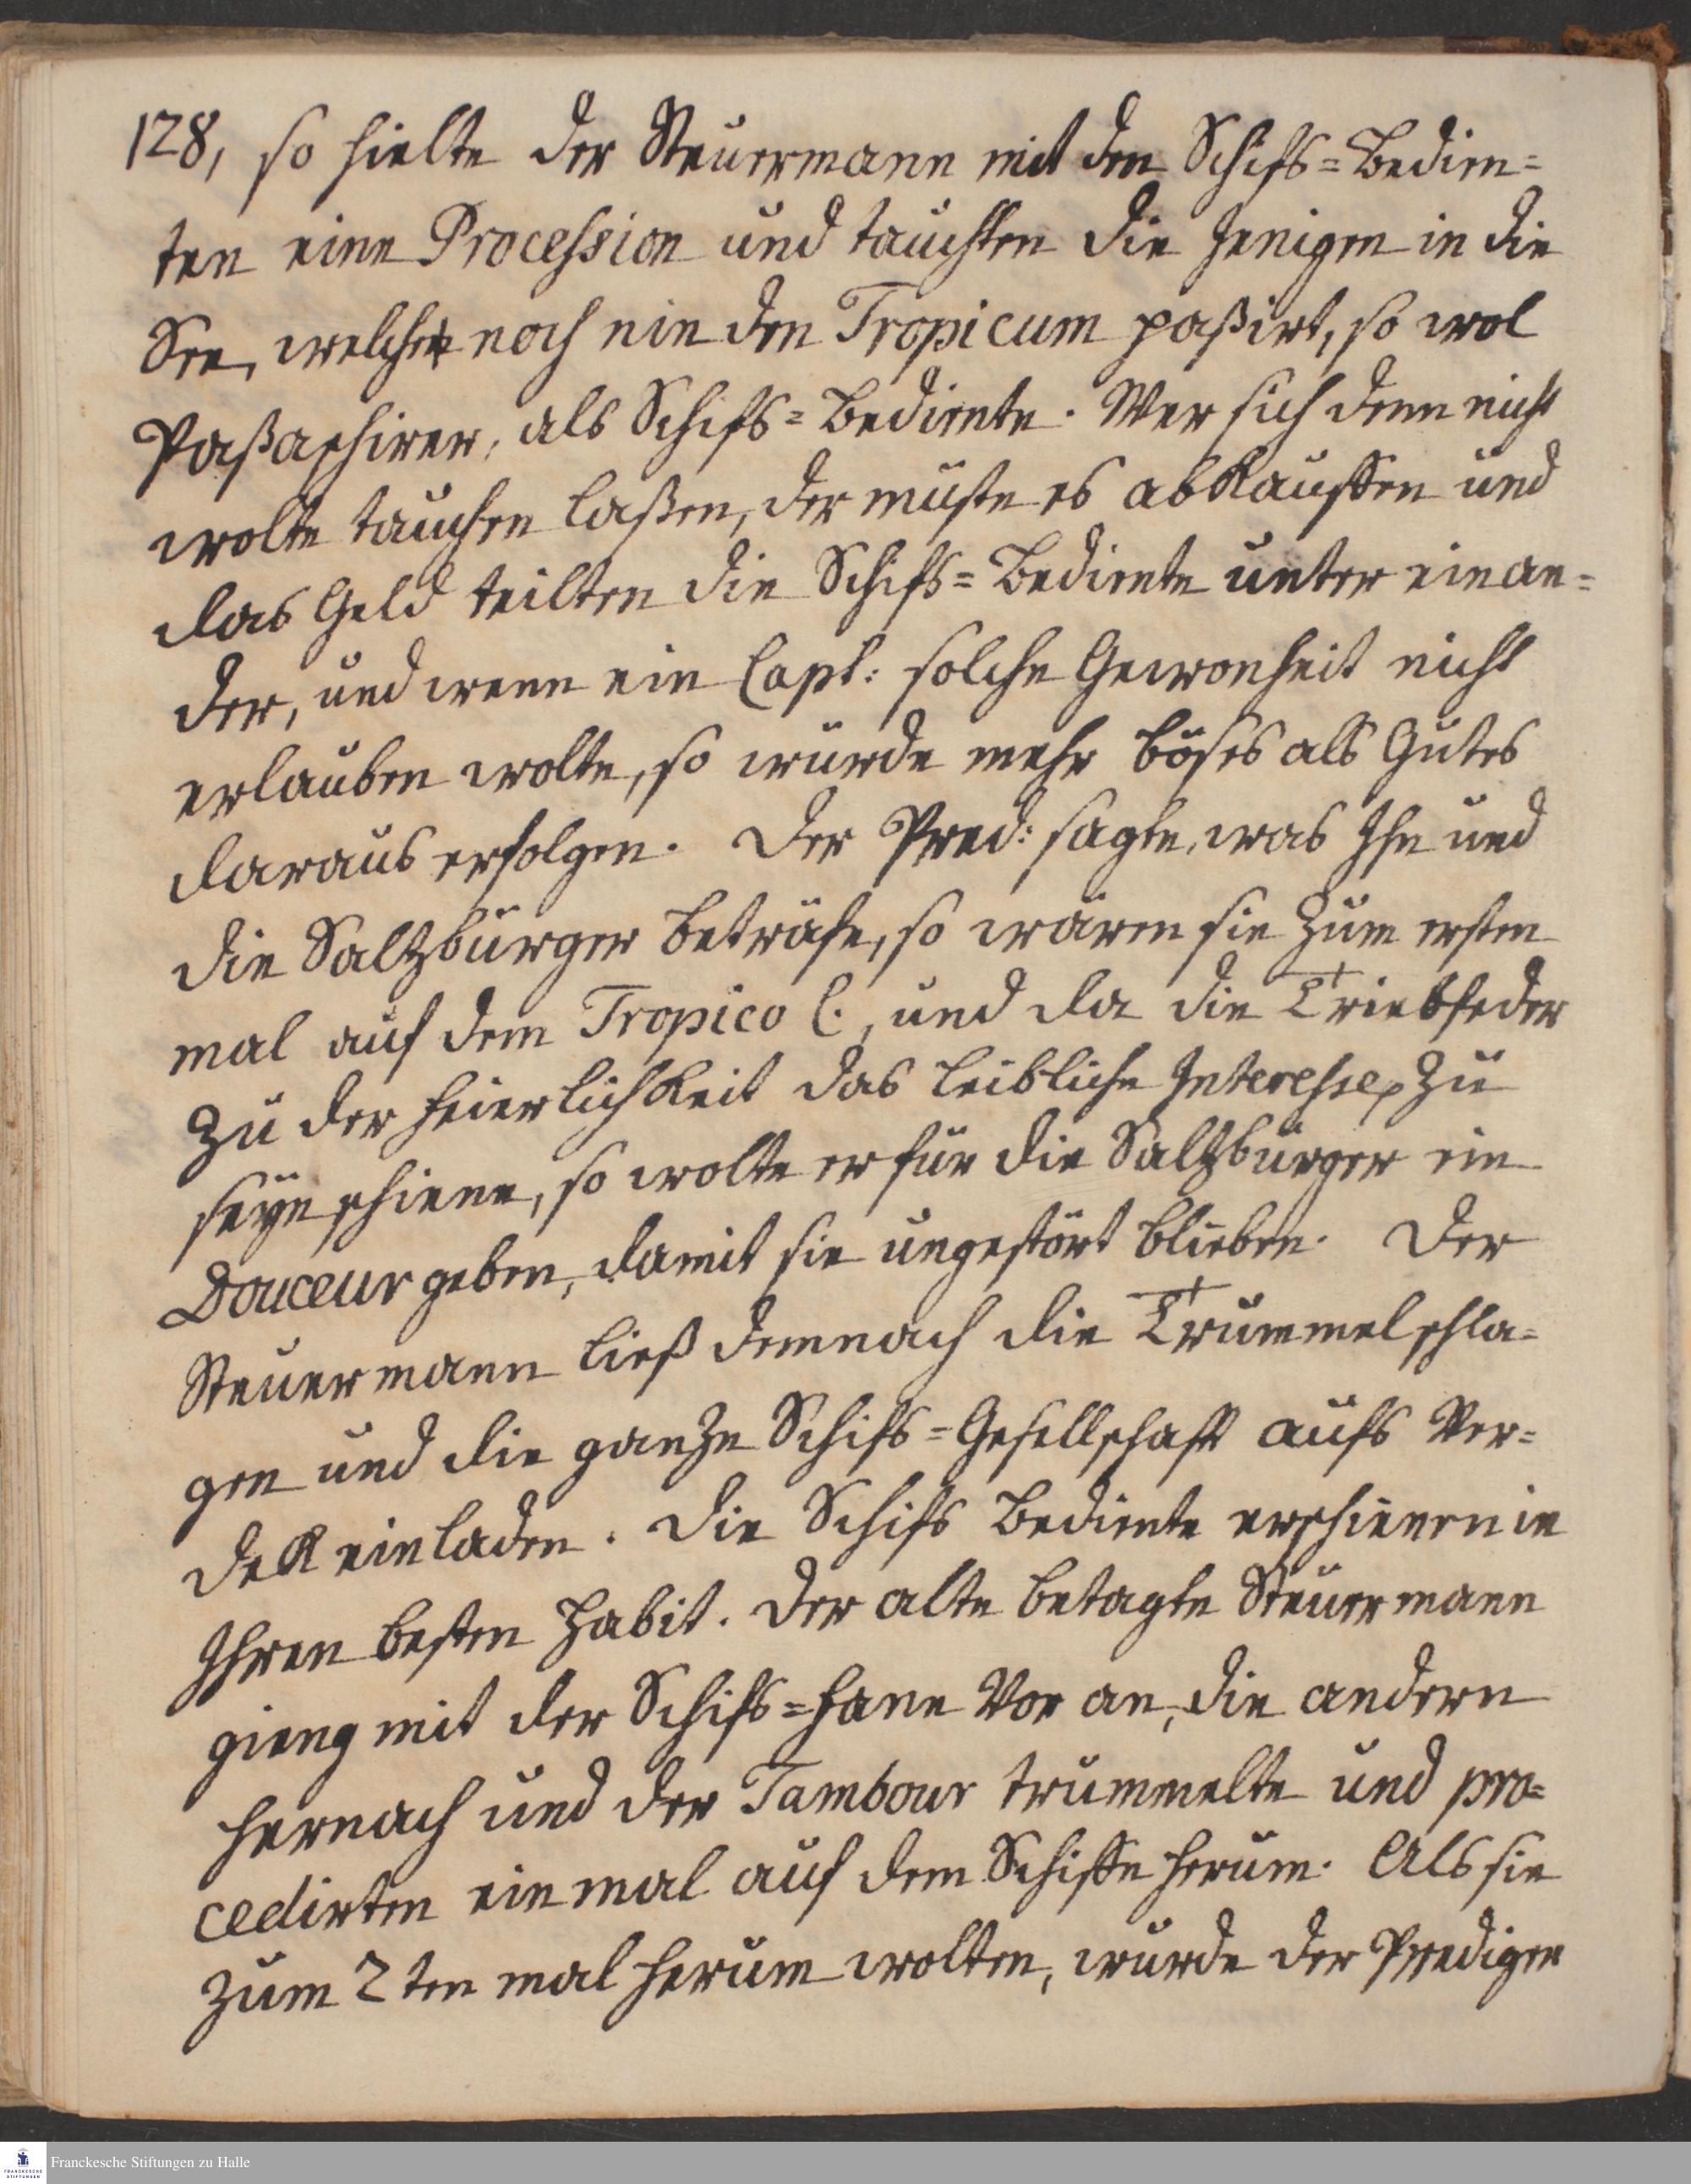 128, so hielte der Steuermann mit den Schifs=Bedien=
ten eine Procession und tauchten die Jenigen in die
See, welche noch nie den Tropicum paßirt, so wol
Paßaschirer, als Schifs=Bediente. Wer sich denn nicht
wolte tauchen laßen, der muste es abkauffen und
das Geld teilten die Schifs=Bediente unter einan=
der, und wenn ein Capt: solche Gewonheit nicht
erlauben wolte, so würde mehr böses als Gutes
daraus erfolgen. Der Pred: sagte, was Ihn und
die Saltzburger beträfe, so wären sie zum ersten
mal auf dem Tropico C., und da die Triebfeder
zu der Feierlichkeit das leibliche Interesse zu
seyn schiene, so wolte er für die Saltzburger ein
Douceur geben, damit sie ungestört blieben. Der
Steuermann ließ demnach die Trummel schla=
gen und die ganze Schifs=Gesellschafft aufs Ver=
dek einladen. Die Schifs Bediente erschienen in
Ihren besten Habit. Der alte betagte Steuermann
gieng mit der Schifs=Fane Vor an, die andern
hernach und der Tambour trummelte und pro=
cedirten einmal auf dem Schiffe herum. Als sie
zum 2ten mal herum wolten, wurde der Prediger
Franckesche Stiftungen zu Halle